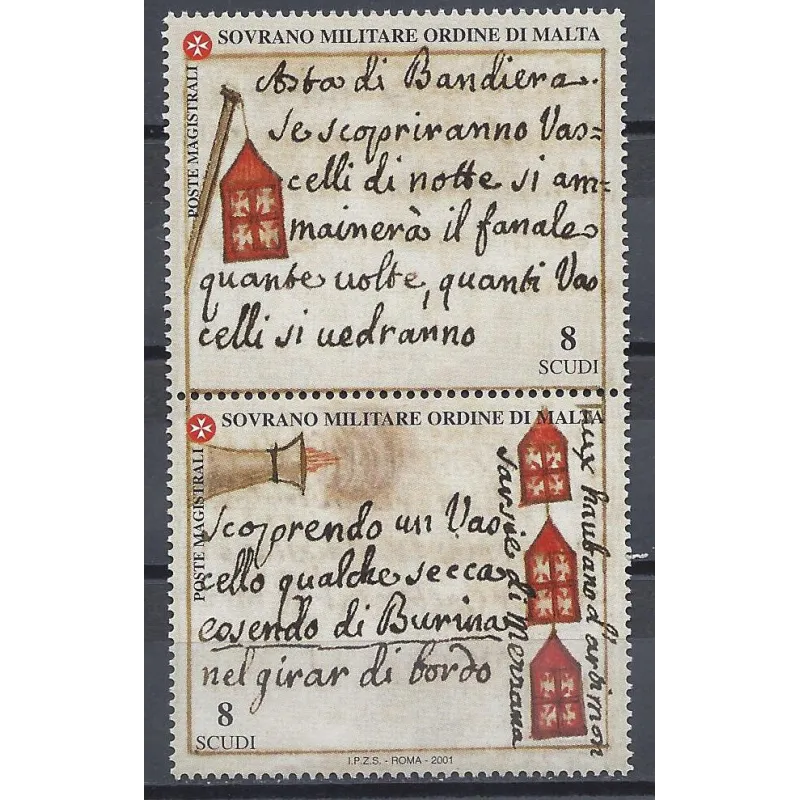 SOVRANO MILITARE ORDINE DI MALTA
POSTE MAGISTRALI
Asta di Bandiera.
se scopriranno Vas=
celli di notte si am=
mainerà il fanale
quante volte, quanti Vas
celli si vedranno
8
SCUDI
SOVRANO MILITARE ORDINE DI MALTA
POSTE MAGISTRALI
scoprendo un Vas
cello qualche secca
eosendo di Burina
nel girar di bordo
8
SCUDI
sarsie di mezzana
aux haubans d'artimon
I.P.Z.S. - ROMA - 2001